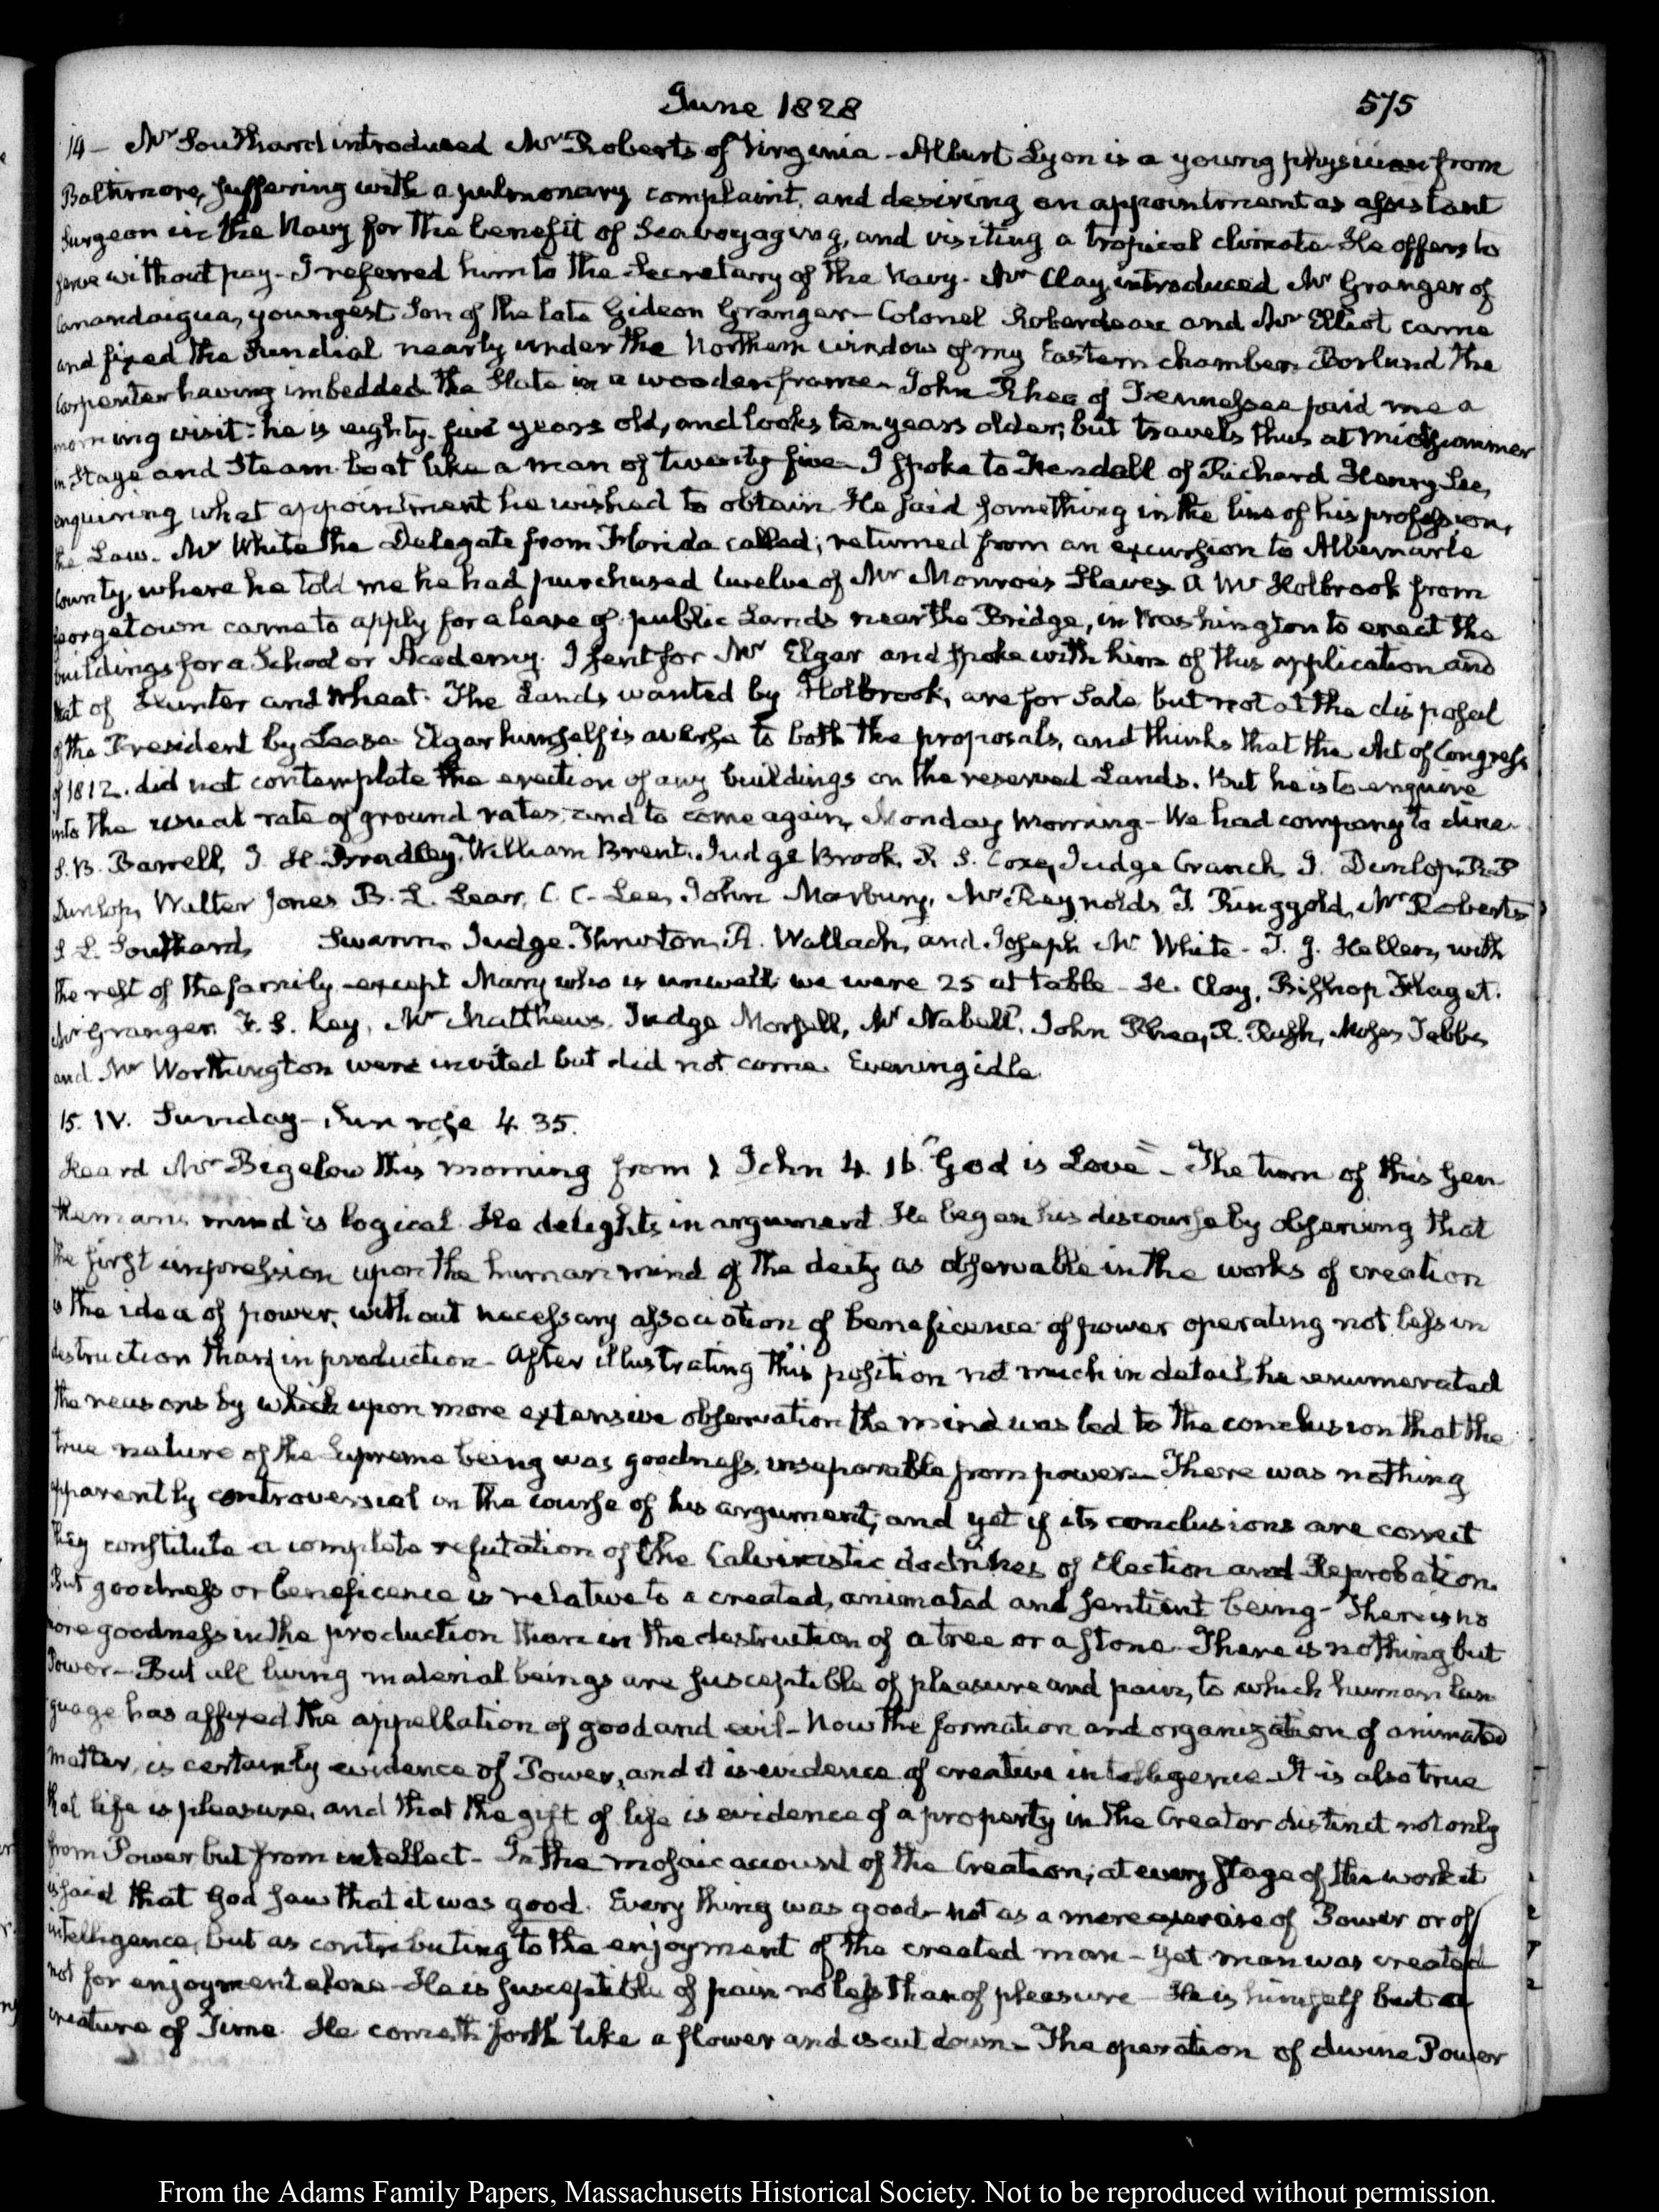 June 1828
575
14 — Mr Southard introduced Mr Roberts of Virginia — Albert Lyon is a young physician from
Baltimore, suffering with a pulmonary complaint, and desiring an appointment as assistant
Surgeon in the Navy for the benefit of Seavoyaging, and visiting a tropical climate. He offers to
serve without pay — I referred him to the Secretary of the Navy. Mr Clay introduced Mr Granger of
Canandaigua, youngest Son of the late Gideon Granger — Colonel Roberdeau and Mr Elliot came
and fixed the Sundial nearly under the Northern window of my Eastern chamber. Borlund the
Carpenter having imbedded the Slate in a wooden frame. John Rhea of Tennessee paid me a
morning visit: he is eighty-five years old, and looks ten years older; but travels thus at Midsummer
in Stage and Steam-boat like a man of twenty-five — I spoke to Kendall of Richard Henry Lee,
enquiring what appointment he wished to obtain. He said something in the line of his profession,
the Law. Mr White the Delegate from Florida called; returned from an excursion to Albemarle
County, where he told me he had purchased twelve of Mr Monroe's Slaves. A Mr Holbrook from
Georgetown came to apply for a lease of public Lands near the Bridge, in Washington to erect the
buildings for a School or Academy. I sent for Mr Elgar and spoke with him of this application and
that of Hunter and Wheat. The Lands wanted by Holbrook, are for Sale but not at the disposal
of the President by Lease. Elgar himself is averse to both the proposals, and thinks that the Act of Congress
of 1812. did not contemplate the erection of any buildings on the reserved Lands. But he is to enquire
into the usual rate of ground rates, and to come again, Monday Morning — We had company to dine.
S. B. Barrell, J. H. Bradley, William Brent, Judge Brook, R. S. Coxe, Judge Cranch, J. Dunlop, R. P
Dunlop, Walter Jones B. L. Lear, C. C. Lee, John Marbury, Mr Reynolds T. Ringgold, Mr Roberts
S. L. Southard, Swann, Judge Thruston, R. Wallach, and Joseph M. White — J. J. Hellen, with
the rest of the family except Mary who is unwell; we were 25 at table — H. Clay, Bishop Flaget.
Mr Granger. F. S. Key, Mr Matthews. Judge Morsell, Mr John Rhea, R. Rush, Moses Tabbs
and Mr Worthington were invited but did not come. Evening idle.
15. IV. Sunday — Sun rose 4. 35.
Heard Mr Bigelow this morning from 1 John 4. 16. "God is Love" — The turn of this Gen
tleman's mind is logical. He delights in argument. He began his discourse by observing that
the first impression upon the human mind of the deity as observable in the works of creation
is the idea of power, without necessary association of beneficence of power operating not less in
destruction than in production — After illustrating this position not much in detail, he enumerated
the reasons by which upon more extensive observation the mind was led to the conclusion that the
true nature of the Supreme being was goodness, inseparable from power — There was nothing
apparently controversial in the course of his argument; and yet if its conclusions are correct
they constitute a complete refutation of the Calvinistic doctrines of Election and Reprobation.
But goodness or beneficence is relative to a created, animated and sentient being — There is no
more goodness in the production than in the destruction of a tree or a stone — There is nothing but
Power — But all living material beings are susceptible of pleasure and pain, to which human lan
guage has affixed the appellation of good and evil — Now the formation and organization of animated
matter, is certainly evidence of Power, and it is evidence of creative intelligence — It is also true
that life is pleasure, and that the gift of life is evidence of a property in the Creator distinct not only
from Power but from intellect — In the mosaic account of the Creation; at every stage of the work it
is said that God saw that it was good. Every thing was good — not as a mere exercise of Power or of
intelligence, but as contributing to the enjoyment of the created man — Yet man was created
not for enjoyment alone — He is susceptible of pain no less than of pleasure — He is himself but a
creature of Time. He cometh forth like a flower and is cut down — The operation of divine Power
From the Adams Family Papers, Massachusetts Historical Society. Not to be reproduced without permission.